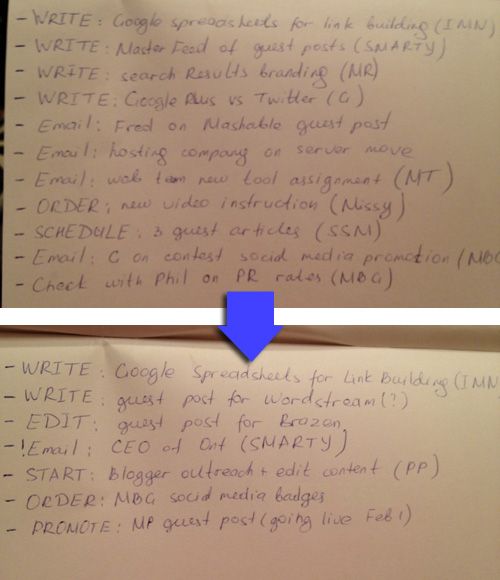 - WRITE: Google spreadsheets for link building (IMN)
- WRITE: Master Feed of guest posts (SMARTY)
- WRITE: search Results branding (MR)
- WRITE: Google Plus vs Twitter (G)
- Email: Fred on Mashable guest post
- Email: hosting company on server move
- Email: web team new tool assignment (MT)
- ORDER: new video instruction (Missy)
- SCHEDULE: 3 guest articles (SSM)
- Email: G on contest social media promotion (MBG
- Check with Phil on PR rates (MBG)
- WRITE: Google Spreadsheets for Link Building (IMN
- WRITE: guest post for Wordstream (?)
- EDIT: guest post for Brazen
- !Email: CEO of Ont (SMARTY)
- START: Blogger outreach + edit content (PP)
- ORDER: MBG social media badges
- PROMOTE: MP guest post (going live Feb 1)